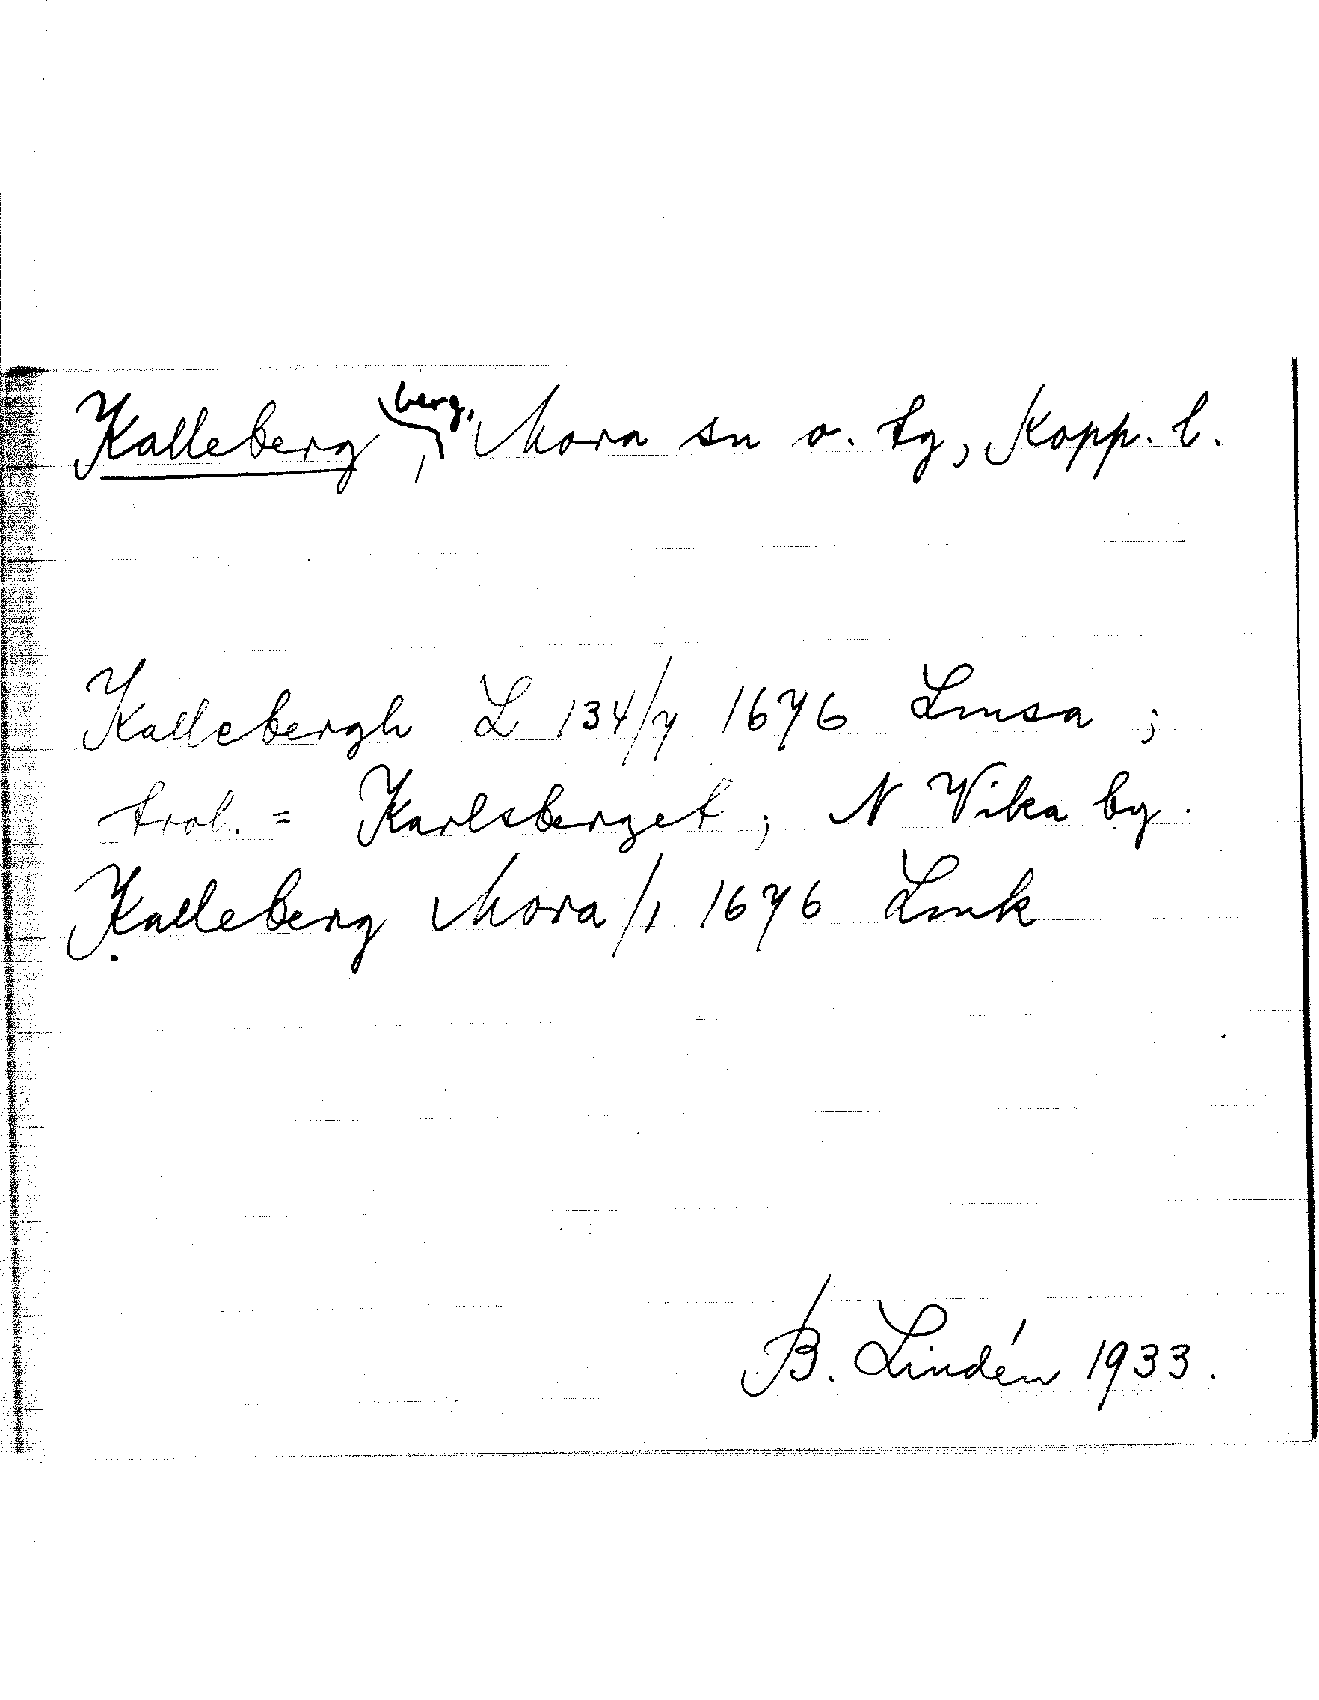 Kalleberg, berg, Mora sn o. tg, Kopp. l.
Kallebergh L 134/7 1676 Lmsa ;
trol. = Karlsberget ; N Vika by.
Kalleberg Mora/1 1676 Lmk
B. Lindén 1933.